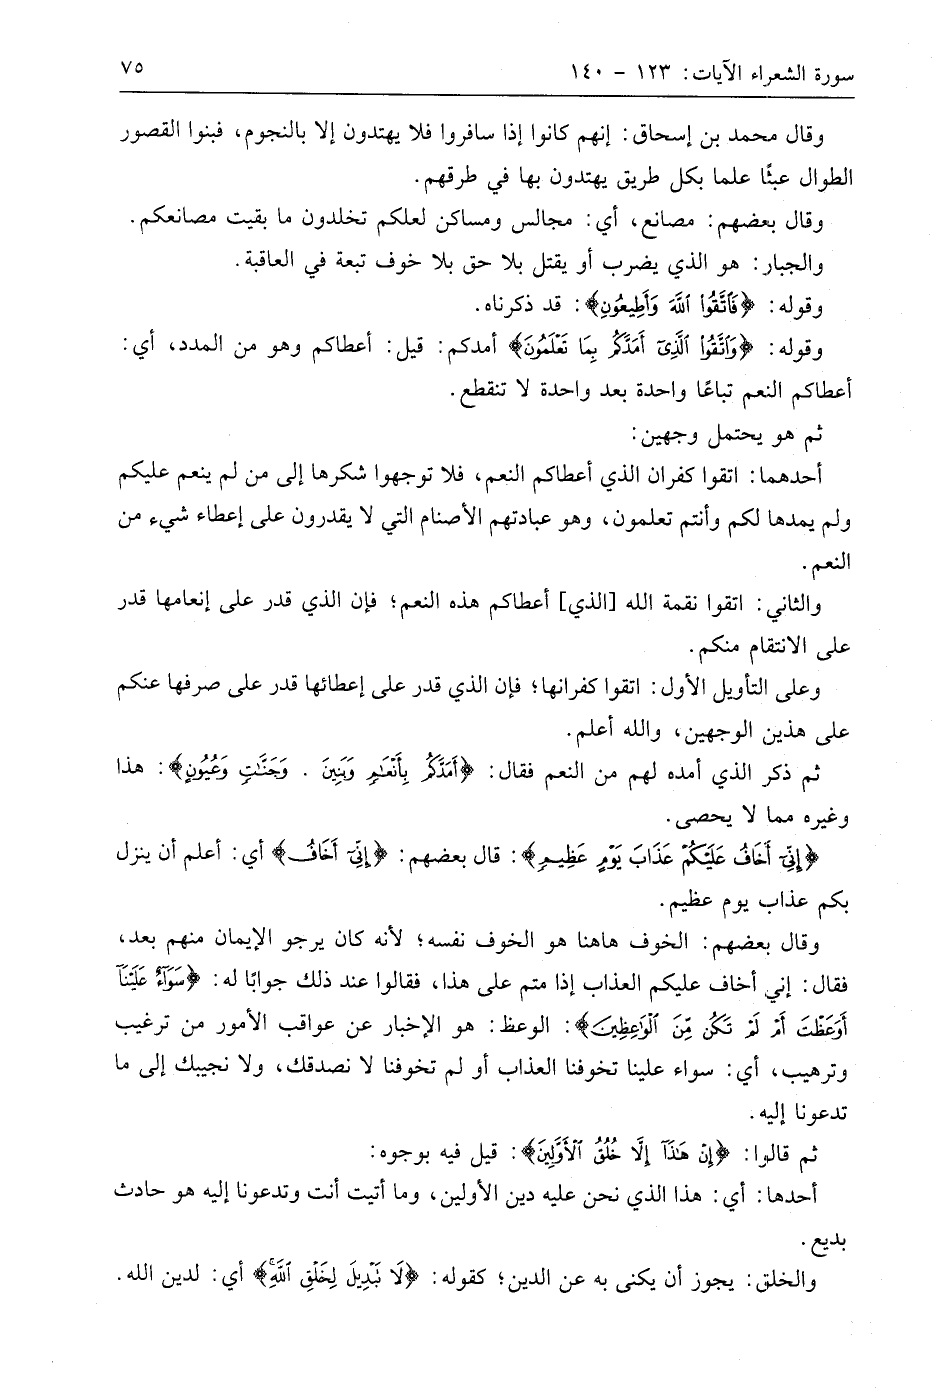 سورة الشعراء الآيات: ١٢٣ - ١٤٠ ٧٥
وقال محمد بن إسحاق: إنهم كانوا إذا سافروا فلا يهتدون إلا بالنجوم، فبنوا القصور
الطوال عبثًا علما بكل طريق يهتدون بها في طرقهم.
وقال بعضهم: مصانع، أي: مجالس ومساكن لعلكم تخلدون ما بقيت مصانعكم.
والجبار: هو الذي يضرب أو يقتل بلا حق بلا خوف تبعة في العاقبة.
وقوله: ﴿فَٱتَّقُوا۟ ٱللَّهَ وَأَطِيعُونِ﴾: قد ذكرناه.
وقوله: ﴿وَٱتَّقُوا۟ ٱلَّذِىٓ أَمَدَّكُم بِمَا تَعْلَمُونَ﴾ أمدكم: قيل: أعطاكم وهو من المدد، أي:
أعطاكم النعم تباعًا واحدة بعد واحدة لا تنقطع.
ثم هو يحتمل وجهين:
أحدهما: اتقوا كفران الذي أعطاكم النعم، فلا توجهوا شكرها إلى من لم ينعم عليكم
ولم يمدها لكم وأنتم تعلمون، وهو عبادتهم الأصنام التي لا يقدرون على إعطاء شيء من
النعم.
والثاني: اتقوا نقمة الله [الذي] أعطاكم هذه النعم؛ فإن الذي قدر على إنعامها قدر
على الانتقام منكم.
وعلى التأويل الأول: اتقوا كفرانها؛ فإن الذي قدر على إعطائها قدر على صرفها عنكم
على هذين الوجهين، والله أعلم.
ثم ذكر الذي أمده لهم من النعم فقال: ﴿أَمَدَّكُم بِأَنْعَٰمٍ وَبَنِينَ . وَجَنَّٰتٍ وَعُيُونٍ﴾: هذا
وغيره مما لا يحصى.
﴿إِنِّىٓ أَخَافُ عَلَيْكُمْ عَذَابَ يَوْمٍ عَظِيمٍ﴾: قال بعضهم: ﴿إِنِّىٓ أَخَافُ﴾ أي: أعلم أن ينزل
بكم عذاب يوم عظيم.
وقال بعضهم: الخوف هاهنا هو الخوف نفسه؛ لأنه كان يرجو الإيمان منهم بعد،
فقال: إني أخاف عليكم العذاب إذا متم على هذا، فقالوا عند ذلك جوابًا له: ﴿سَوَآءٌ عَلَيْنَآ
أَوَعَظْتَ أَمْ لَمْ تَكُن مِّنَ ٱلْوَٰعِظِينَ﴾: الوعظ: هو الإخبار عن عواقب الأمور من ترغيب
وترهيب، أي: سواء علينا تخوفنا العذاب أو لم تخوفنا لا نصدقك، ولا نجيبك إلى ما
تدعونا إليه.
ثم قالوا: ﴿إِنْ هَٰذَآ إِلَّا خُلُقُ ٱلْأَوَّلِينَ﴾: قيل فيه بوجوه:
أحدها: أي: هذا الذي نحن عليه دين الأولين، وما أتيت أنت وتدعونا إليه هو حادث
بديع.
والخلق: يجوز أن يكنى به عن الدين؛ كقوله: ﴿لَا تَبْدِيلَ لِخَلْقِ ٱللَّهِۚ﴾ أي: لدين الله.